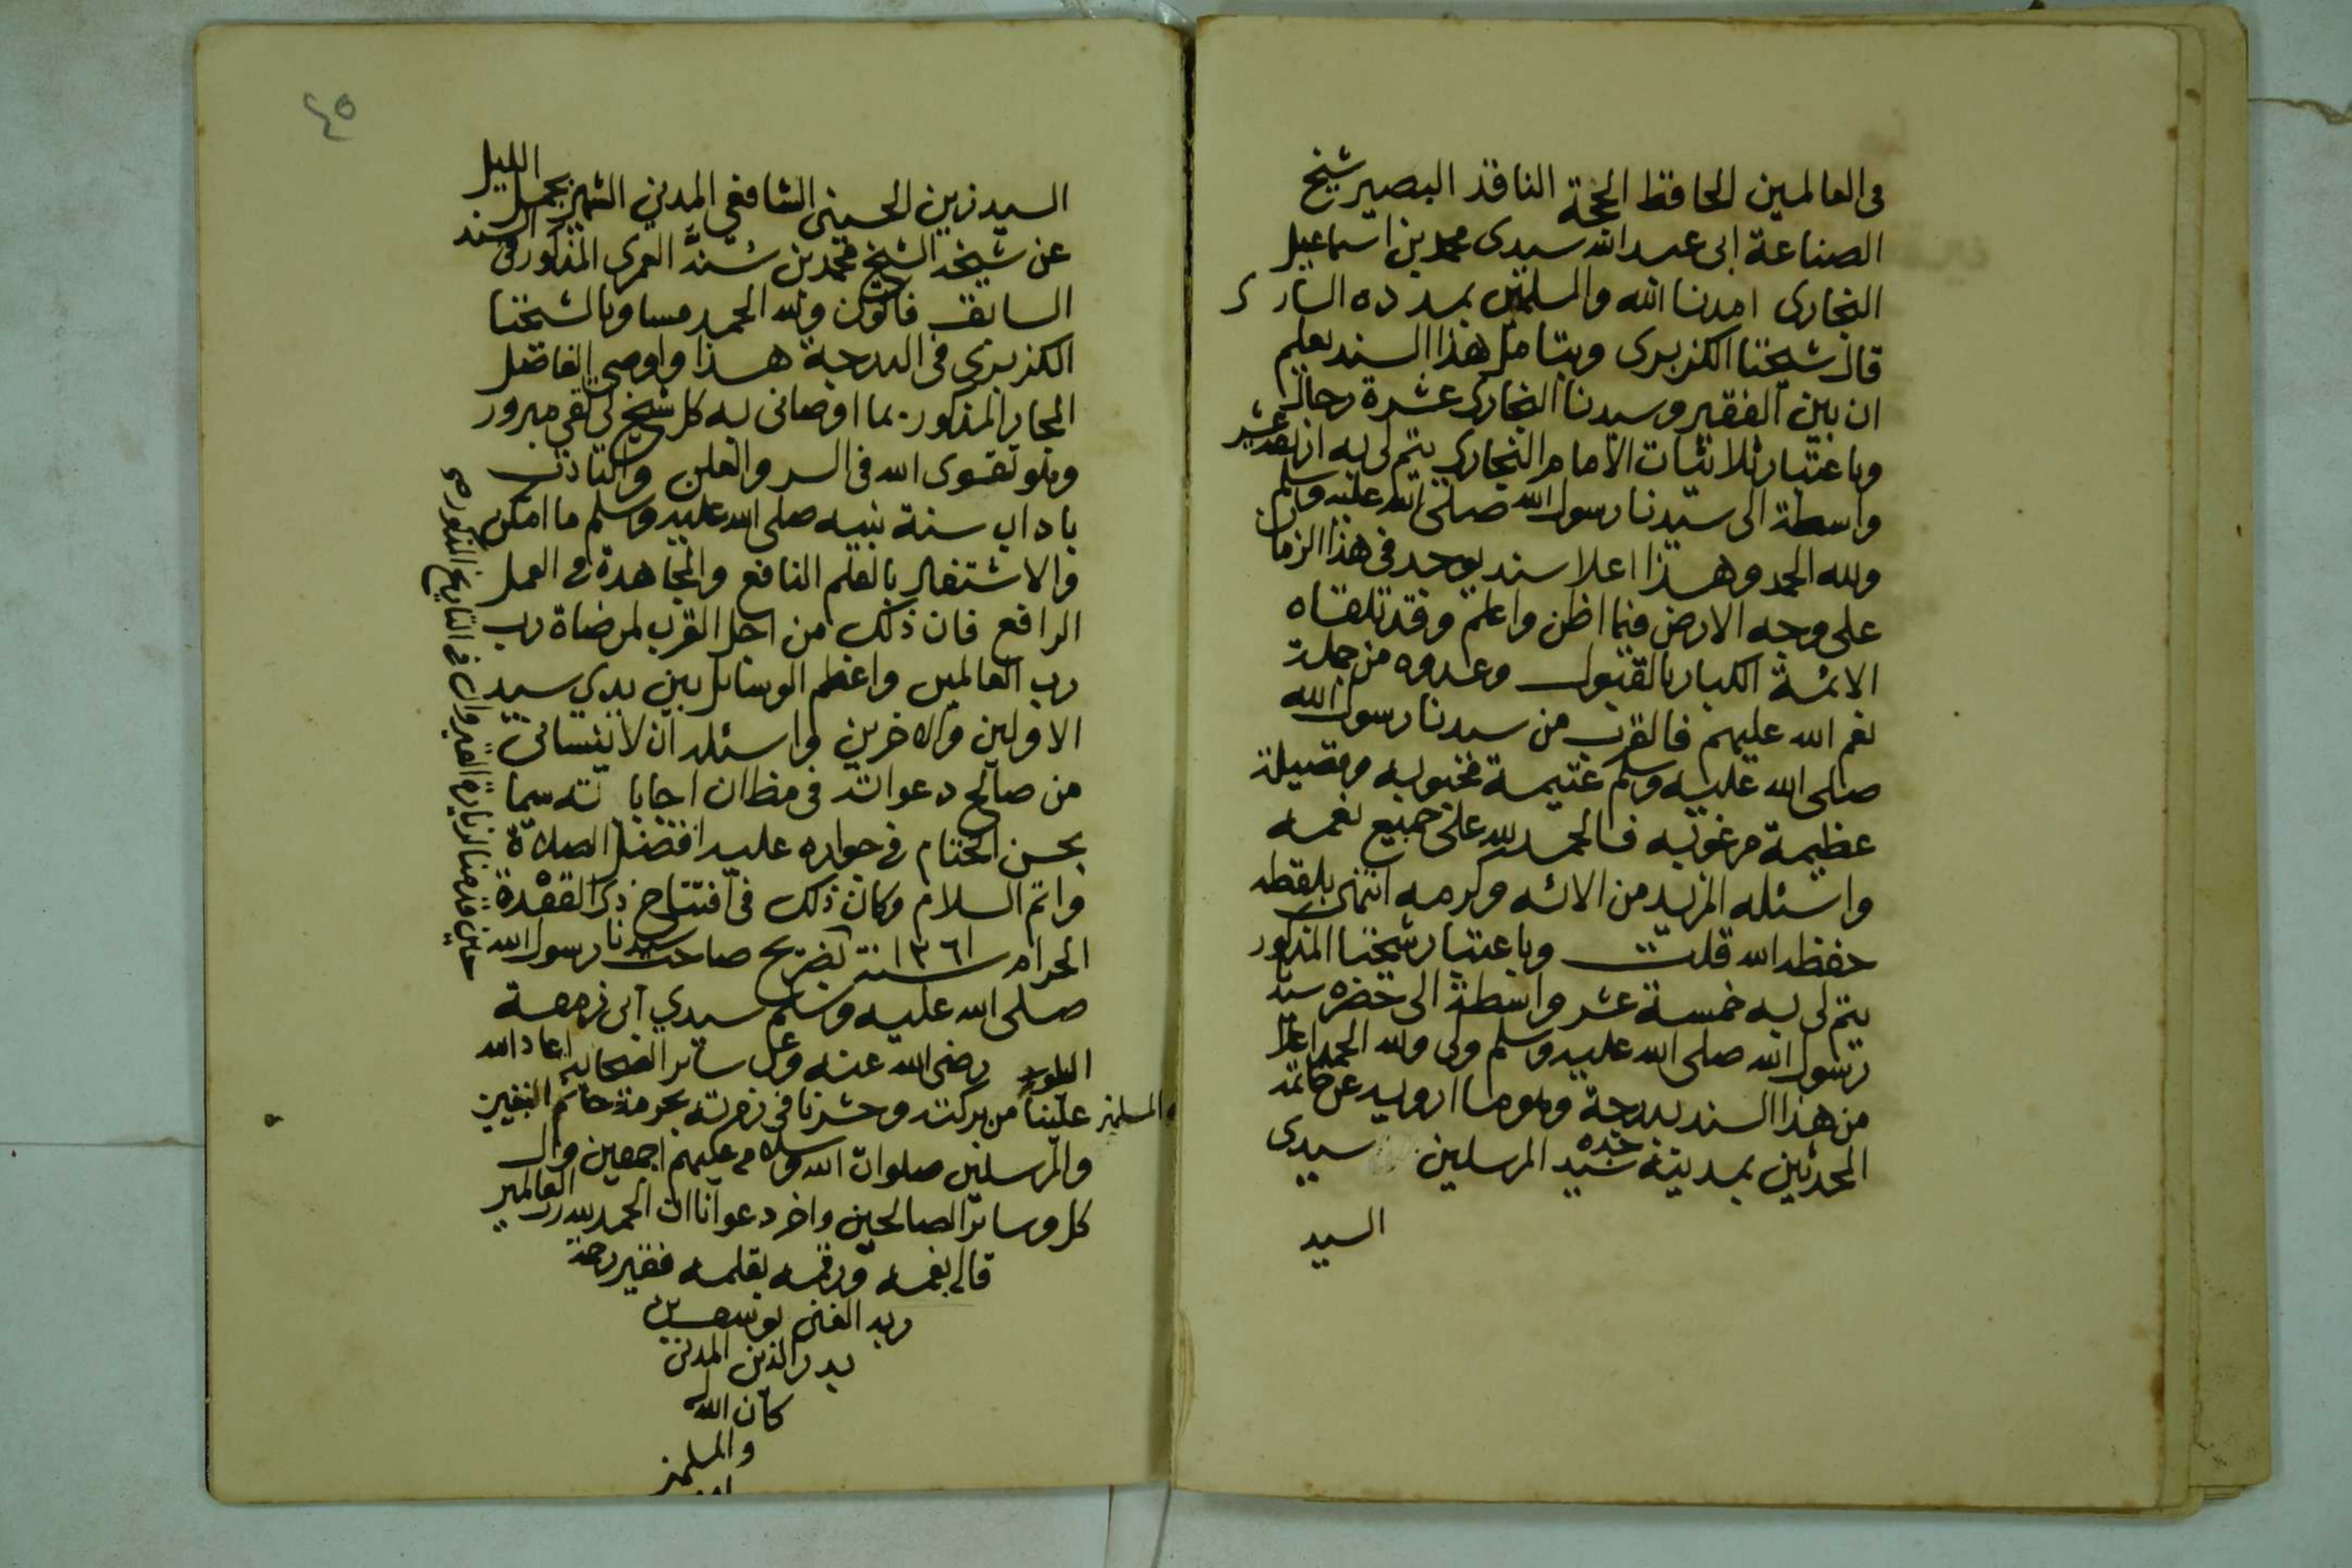 فى العالمين الحافظ الحجة الناقد البصير شيخ
الصناعة ابى عبد الله سيدى محمد بن اسماعيل
البخارى امدنا الله والمسلمين بمدده السارى
قال شيخنا الكزبرى وبتامل هذا السند يعلم
ان بين الفقير وسيدنا البخارى عشرة رجال
وباعتبار ثلاثيات الامام البخاري يتم لى به اربعة عشر
واسطة الى سيدنا رسول الله صلى الله عليه وسلم
ولله الحمد وهذا اعلا سند يوجد فى هذا الزمان
على وجه الارض فيما اظن واعلم وقد تلقاه
الائمة الكبار بالقبول وعدوه من جملة
نعم الله عليهم فالقرب من سيدنا رسول الله
صلى الله عليه وسلم غنيمة محبوبه وفضيلة
عظيمة مرغوبه فالحمد لله على جميع نعمه
واسئله المزيد من الائه وكرمه انتهى بلفظه
حفظه الله قلت وباعتبار شيخنا المذكور
يتم لى به خمسة عشر واسطة الى حضرة سيدنا
رسول الله صلى الله عليه وسلم ولى ولله الحمد اعلا
من هذا السند بدرجة وهو ما ارويه عن خاتمة
المحدثين بمدينة جده سيد المرسلين سيدى
السيد
٤٥
السيد زين الحسينى الشافعى المدني الشهير بجمل الليل
عن شيخه الشيخ محمد بن سنه العمرى المذكور فى السند
السابق فاكون ولله الحمد مساويا لشيخنا
الكزبرى فى الدرجة هذا واوصى الفاضل
المجاز المذكور بما اوصانى به كل شيخ لى تقى مبرور
وهو تقوى الله فى السر والعلن والتادب
باداب سنة نبيه صلى الله عليه وسلم ما امكن
والاشتغال بالعلم النافع والمجاهدة فى العمل
الرافع فان ذلك من اجل القرب لمرضاة رب
رب العالمين واعظم الوسائل بين يدي سيد
الاولين والاخرين واسئله ان لا ينسانى
من صالح دعواته فى مظان اجاباته سيما
بحسن الختام فى جواره عليه افضل الصلاة
واتم السلام وكان ذلك فى افتتاح ذى القعدة
الحرام سنة ١٣٦١ بضريح صاحب سيدنا رسول الله
صلى الله عليه وسلم سيدي ابى زمعة
البلوى رضى الله عنه وعن سائر الصحابة اعاد الله
علينا والمسلمين من بركته وحشرنا فى زمرته بحرمة خاتم النبيين
والمرسلين صلوات الله وسلامه عليهم اجمعين وال
كل وسائر الصالحين واخر دعوانا ان الحمد لله رب العالمين
قاله بفمه ورقمه بقلمه فقير رحمة
ربه الغنى يوسف بن
بدر الدين المدنى
كان الله له
والمسلمين
حين قدمنا لزيارة القيروان فى التاريخ المذكور